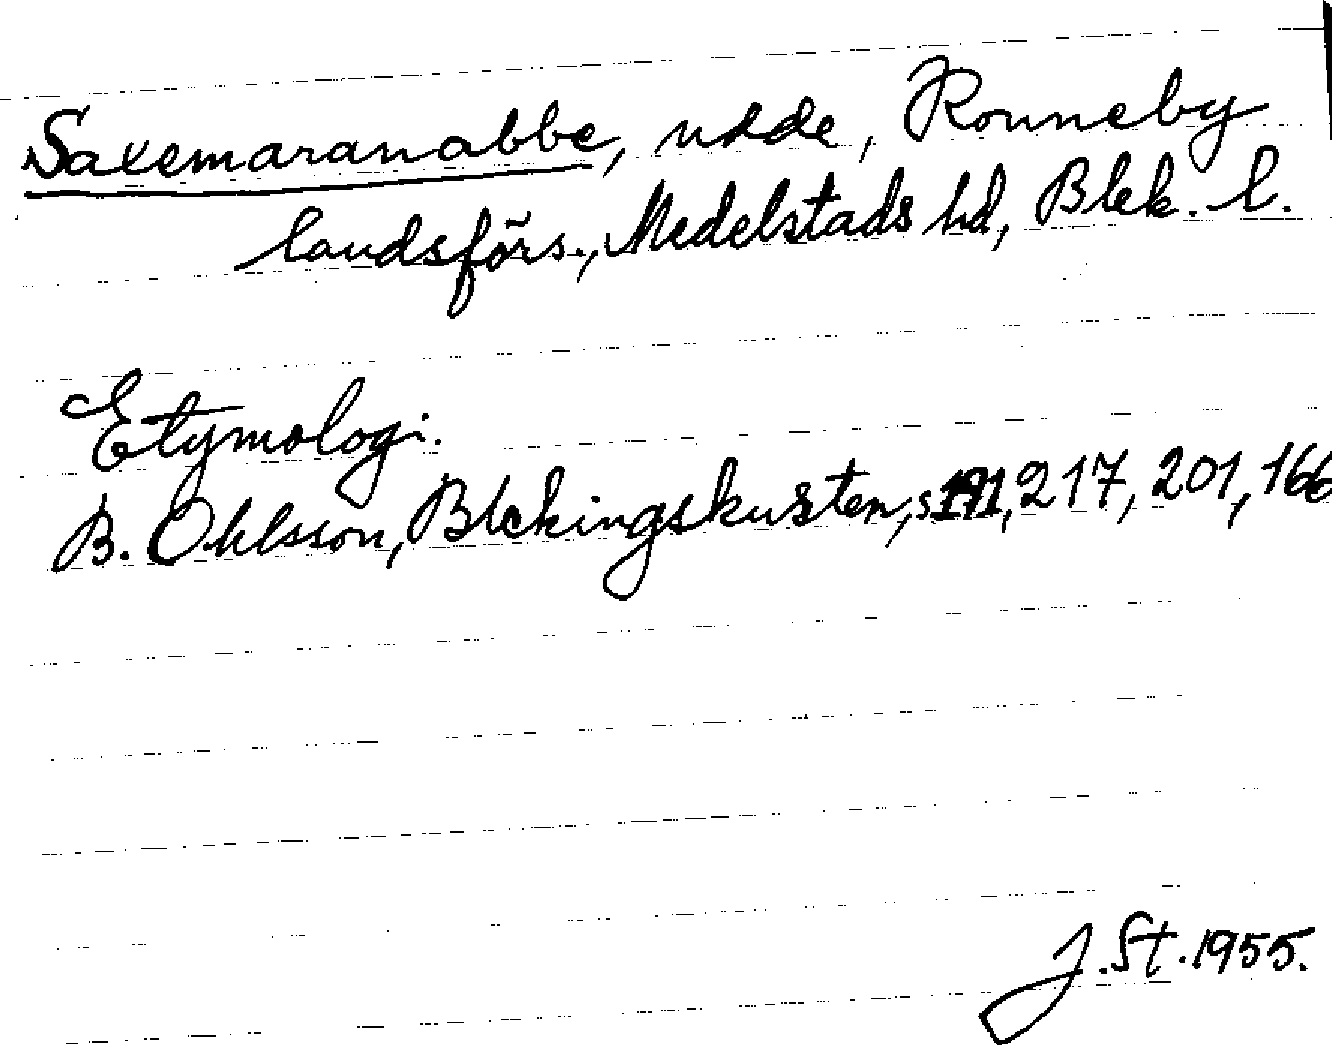 Saxemaranabbe, udde, Ronneby
landsförs., Medelstads hd, Blek. l.
Etymologi.
B. Ohlsson, Blekingskusten, s. 191, 217, 201, 166
J. St. 1955.